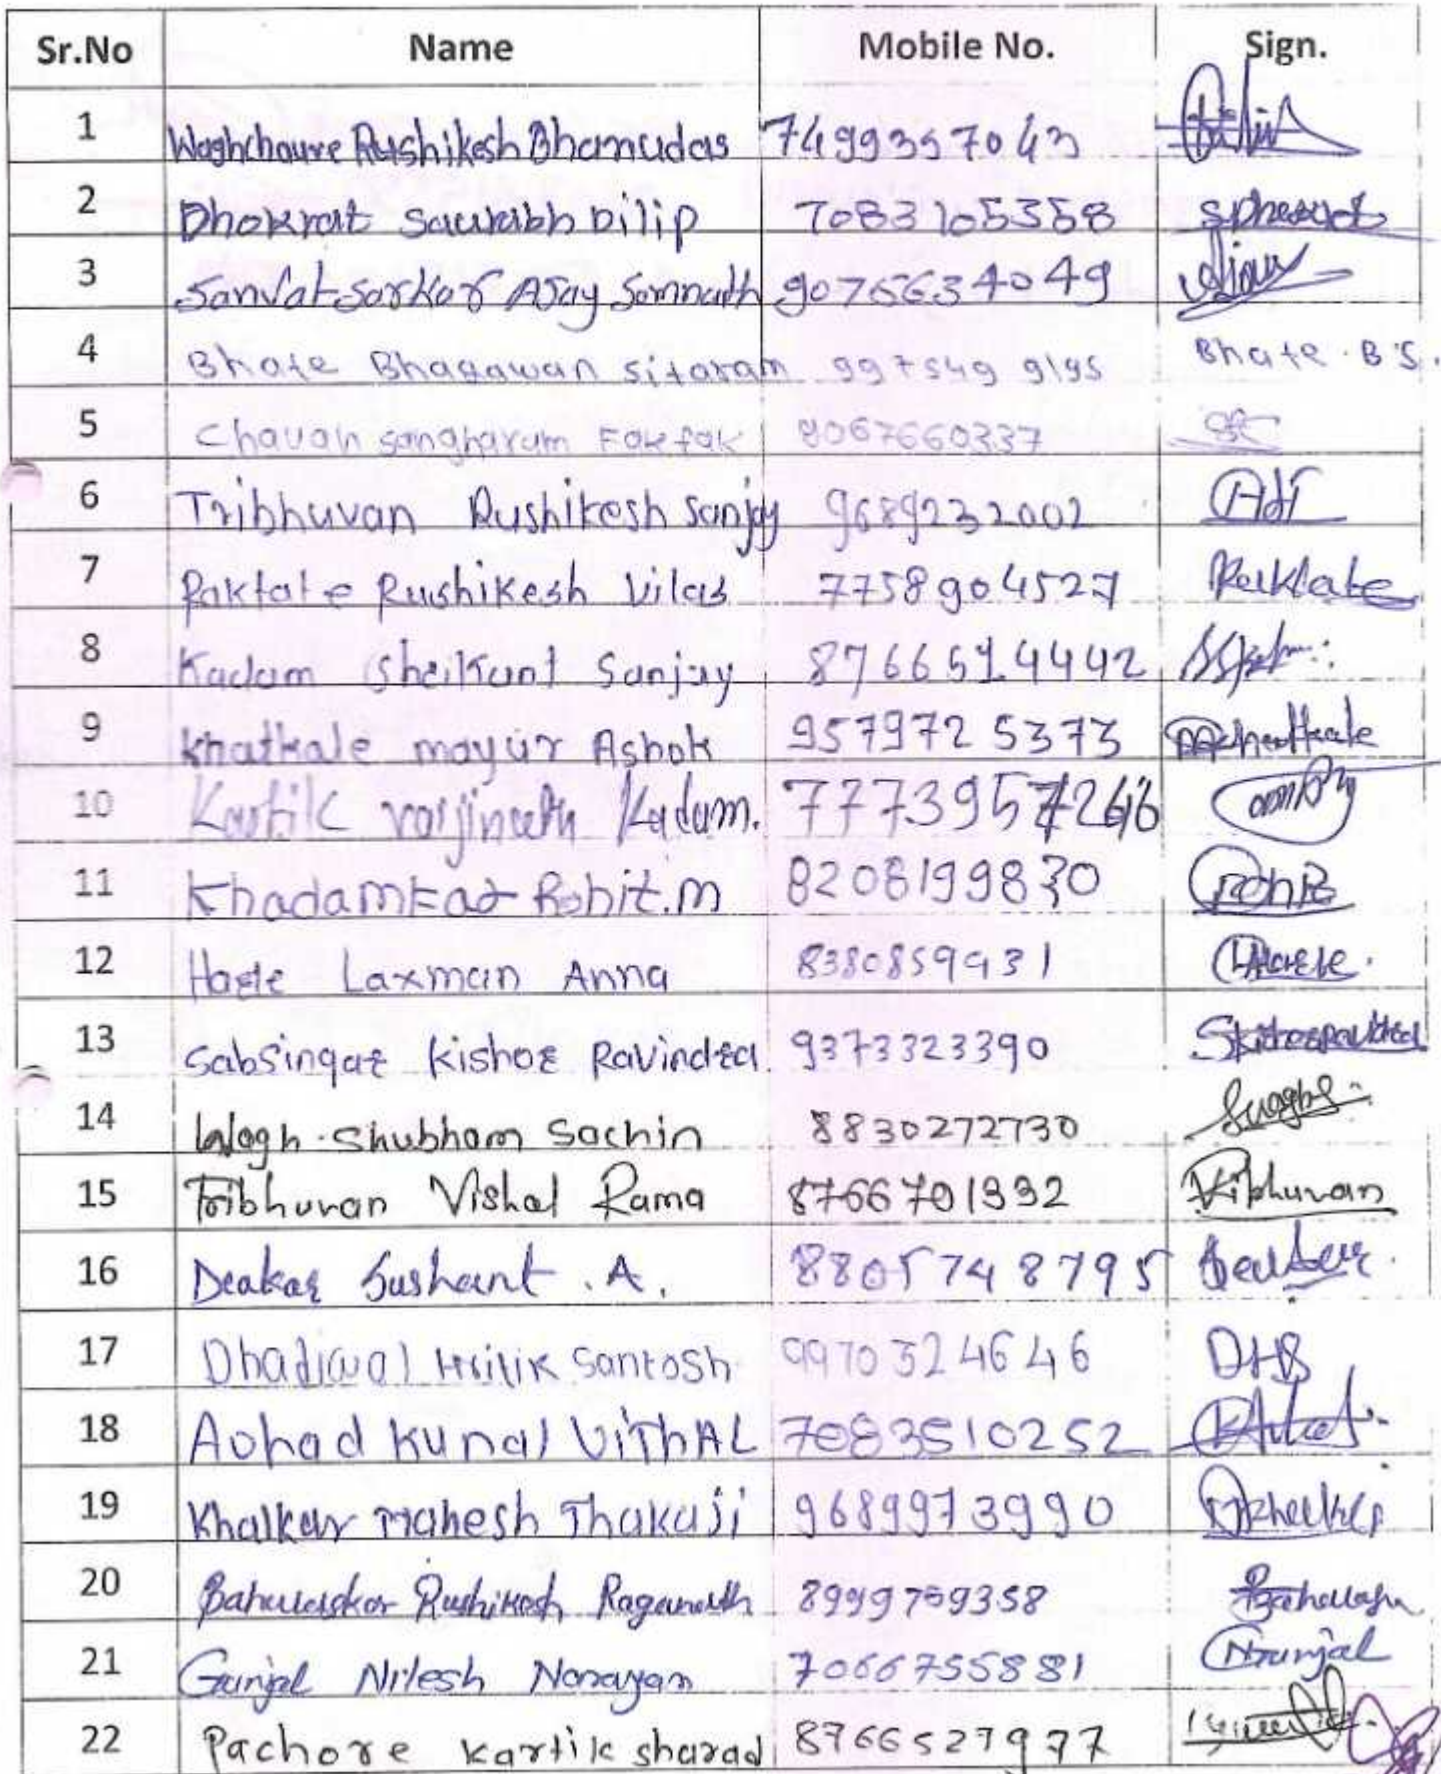 Sr.No Name Mobile No. Sign.
1 Waghchaure Rushikesh Bhanudas 7499357043
2 Dhokrat Saurabh Dilip 7083105358
3 Sanvatsarkar Ajay Somnath 9075634049
4 Bhate Bhagawan sitaram 9975499195 Bhate . B S.
5 Chavan sangharam Fakfak 9067660337
6 Tribhuvan Rushikesh Sanjay 9689232002
7 Raktate Rushikesh Vilas 7758904527 Raktate
8 Kadam Shrikant Sanjay 8766514442
9 Khatkale mayur Ashok 9579725373
10 Kartik vaijinath Kadam.
11 Khadamkar Rohit.m Rohit
12 Hade Laxman Anna 8380859931
13 Sabsingar Kishor Ravindra 9373323390
14 Wagh Shubham Sachin 8830272730
15 Tribhuvan Vishal Rama 8766701332 Tribhuvan
16 Deakar Sushant . A. 8805748795
17 Dhadiwal Hritik Santosh 9970324646 DHS
18 Aohad Kunal VithAL 7083510252
19 Khalkar Mahesh Thakaji 9689973990
20 Bahuleskar Rushikesh Raganath 8999759358
21 Gunjal Nilesh Narayan 7066755881 NGunjal
22 Pachore Kartik sharad 8766527977